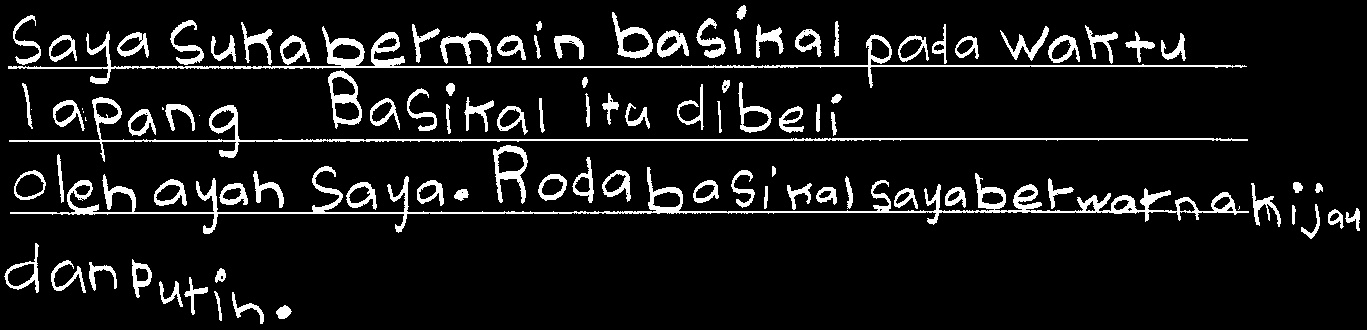 Saya Suka bermain basikal pada waktu
lapang Basikal itu dibeli
oleh ayah Saya. Roda basikal saya berwarna hijau
dan Putih.